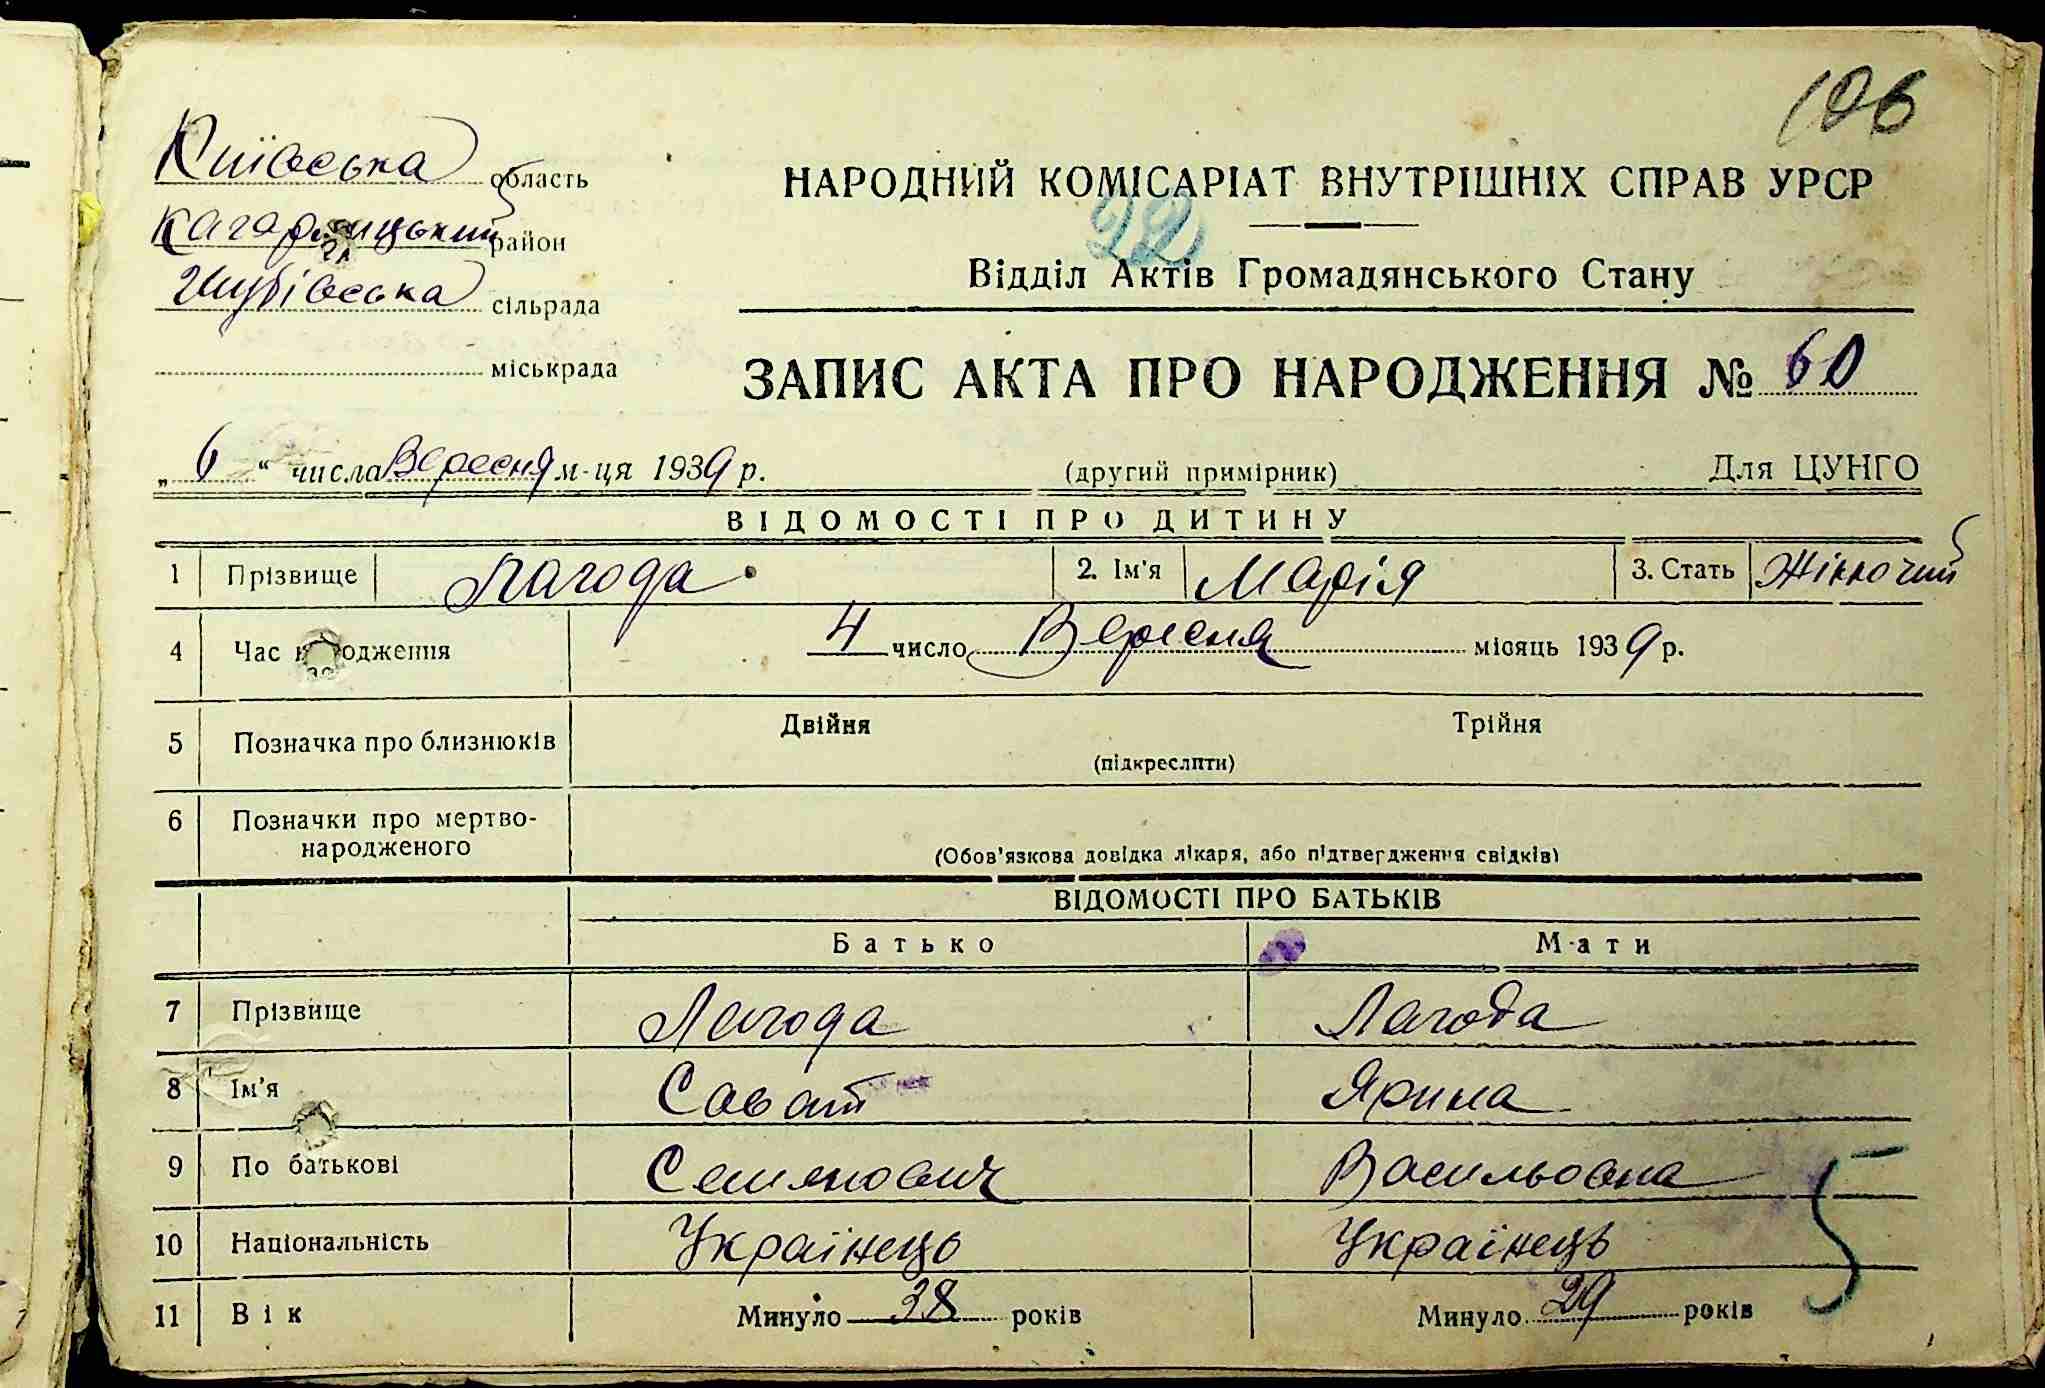 106
Київська область
Кагарлицький район
сільрада
міськрада
НАРОДНИЙ КОМІСАРІАТ ВНУТРІШНІХ СПРАВ УРСР
22
Відділ Актів Громадянського Стану
ЗАПИС АКТА ПРО НАРОДЖЕННЯ № 60
„6“ числа Вересня м-ця 1939 р. (другий примірник) Для ЦУНГО
ВІДОМОСТІ ПРО ДИТИНУ
1 Прізвище Лагода 2. Ім'я Марія 3. Стать Жіночий
4 Час народження 4 число Вересня місяць 1939 р.
5 Позначка про близнюків Двійня Трійня
(підкреслити)
6 Позначки про мертво-
народженого
(Обов'язкова довідка лікаря, або підтвердження свідків)
ВІДОМОСТІ ПРО БАТЬКІВ
Батько Мати
7 Прізвище Лагода Лагода
8 Ім'я Сават Ярина
9 По батькові Семенович Васильовна
10 Національність Українець Українець
11 Вік Минуло 38 років Минуло 29 років
5